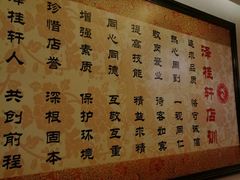 泽桂轩店训
追求品质 恪守诚信
热心周到 一视同仁
敬岗爱业 待客如宾
提高技能 精益求精
同心同德 互敬互重
增强素质 保护环境
珍惜店誉 深根固本
泽桂轩人 共创前程